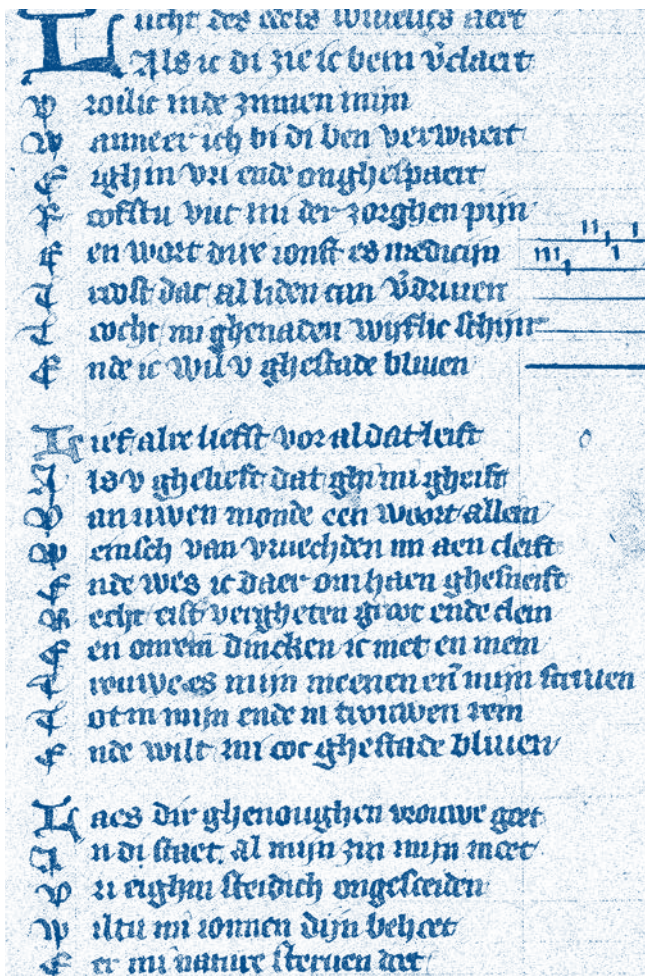 Lucht des edels wiuelics aert
Als ic di zie ic bem v̄claert
Vroilic inde zinnen mijn
Wanneer ich bi di ben verwaert
Eighin vri ende onghespaert
Coefstu vut mi der zorghen pijn
Een wort dure ionst es medicijn
Troost dat al liden can v̄driuen
Tocht mi ghenaden wijflic schijn
Ende ic wil v ghestade bliuen
Lief alre liefst vor al dat leift
Als v ghelieft dat ghi mi gheift
Van uwen monde een woort allein
Wensch van vruechden mi aen cleift
Ende wes ic daer om haen ghesneift
Recht eist vergheten groot ende clein
En omein dincken ic met en mein
Trouwe es mijn meenen en̄ mijn
Tot in mijn ende in trouwen rein
Ende wilt mi ooc ghestade bliuen
Laes dir ghenoughen vrouwe goet
An di staet al mijn zin mijn moet
Vri eighin steidich ongesceiden
Wiltu mi ionnen dijn behoet
Eer mi nature steruen doet